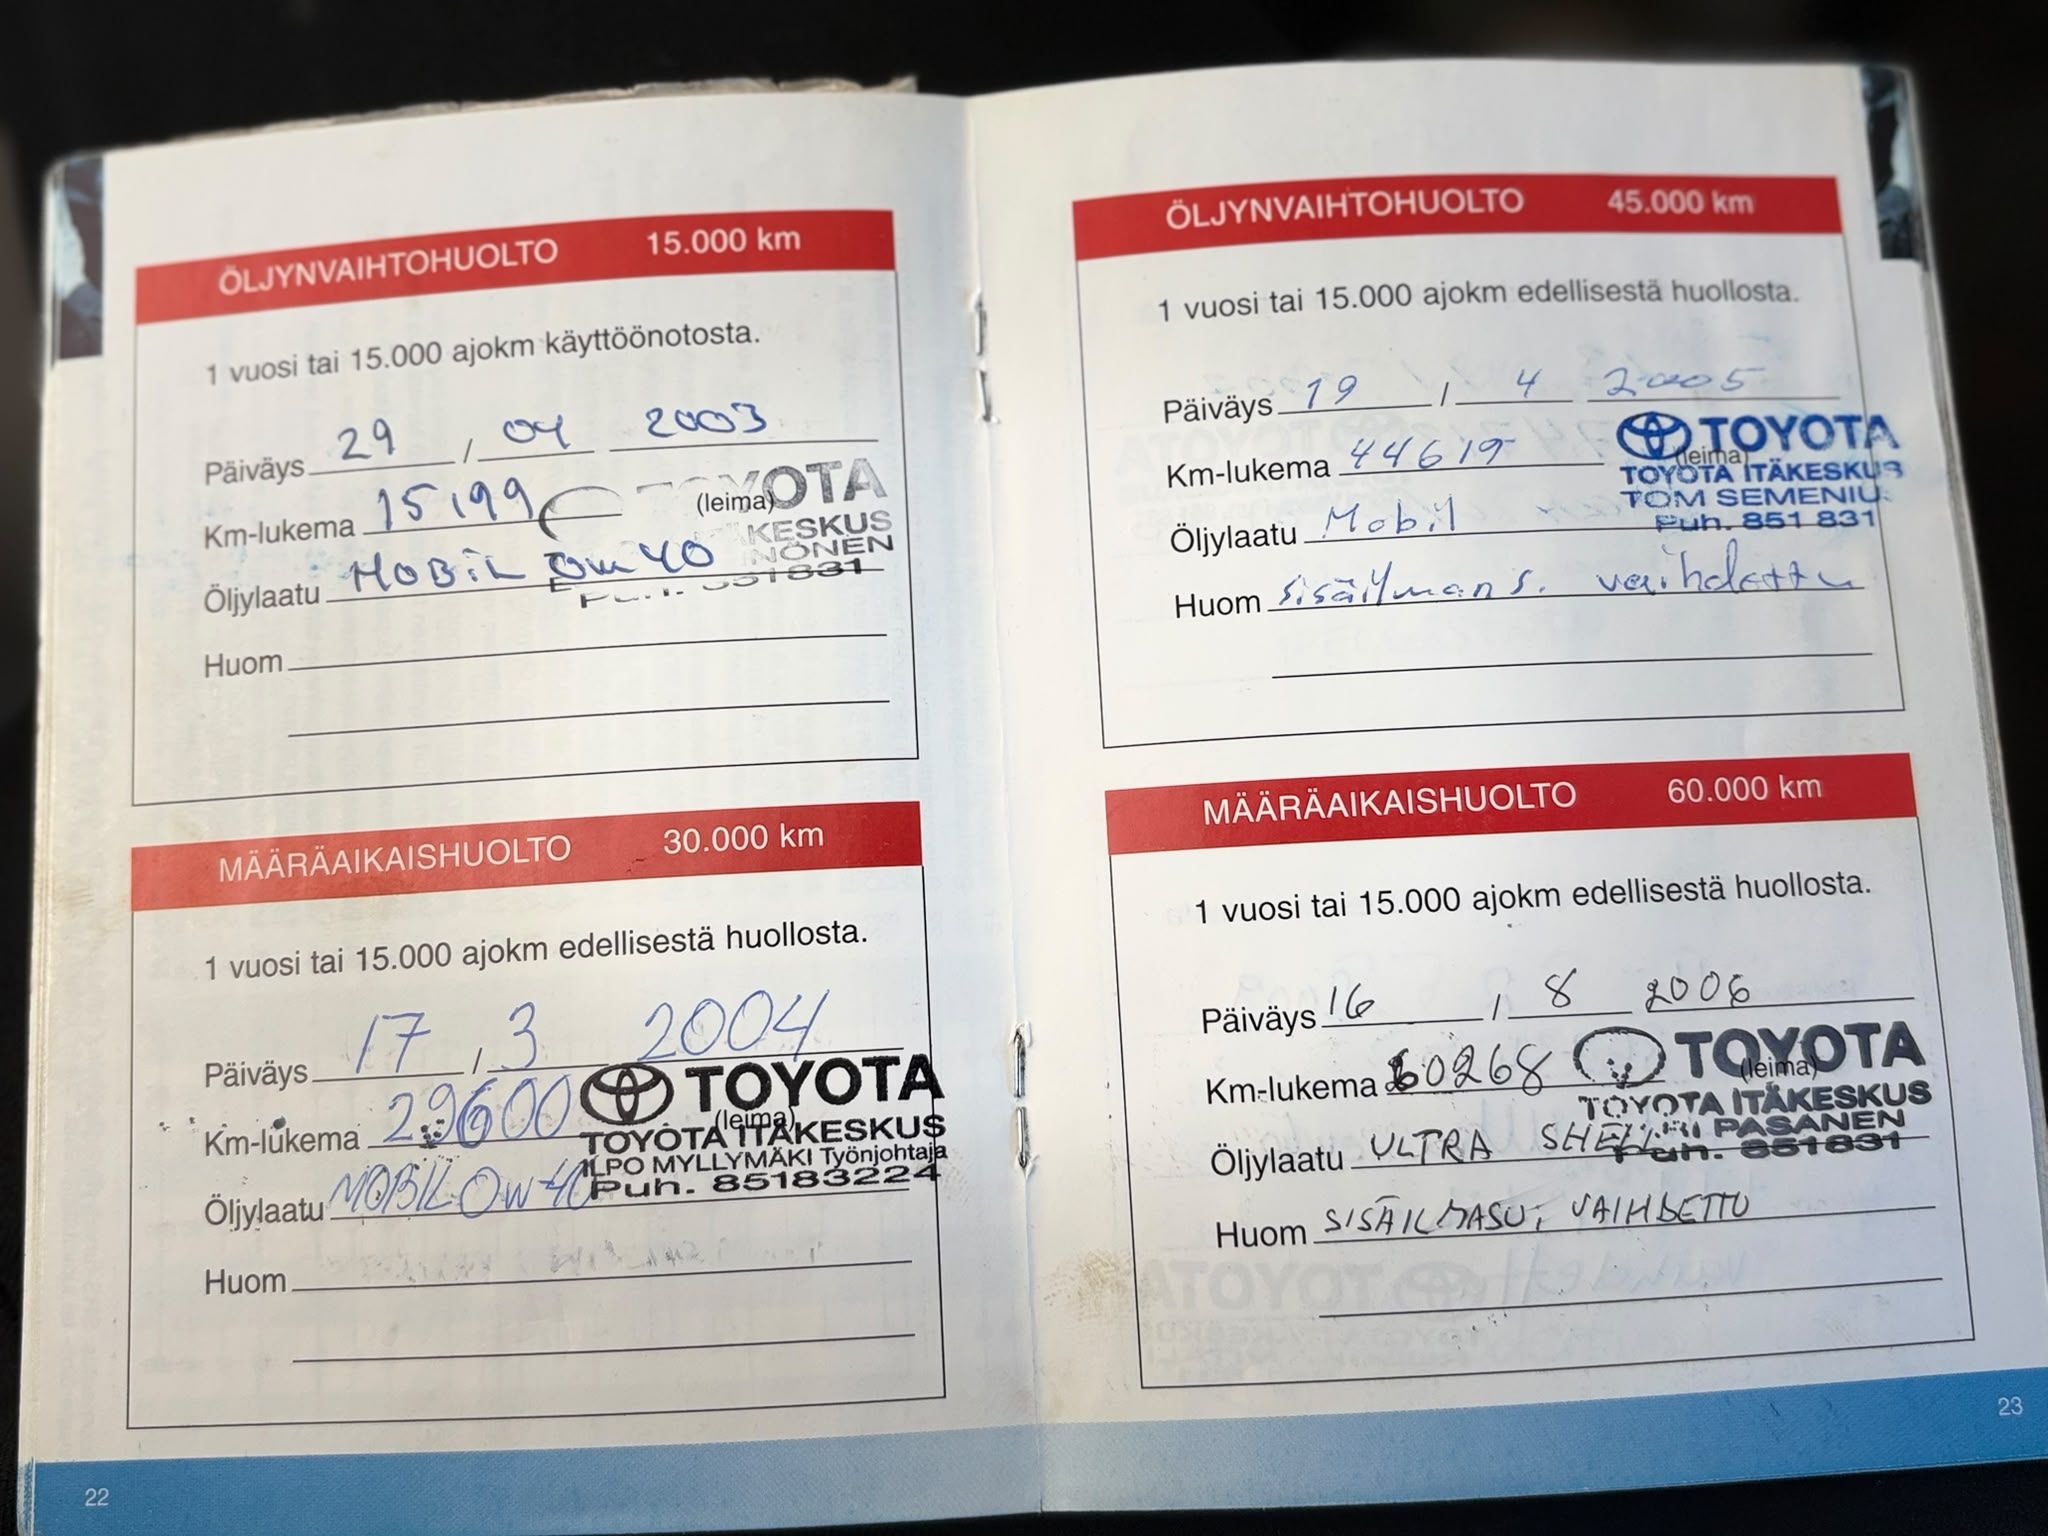 ÖLJYNVAIHTOHUOLTO 15.000 km
1 vuosi tai 15.000 ajokm käyttöönotosta.
Päiväys 29 / 04 2003
Km-lukema 15199
(leima)
TOYOTA
KESKUS
NÖNEN
Öljylaatu MOBIL 0W40
Puh. 851831
Huom
MÄÄRÄAIKAISHUOLTO 30.000 km
1 vuosi tai 15.000 ajokm edellisestä huollosta.
Päiväys 17 / 3 2004
Km-lukema 29600
TOYOTA
(leima)
TOYOTA ITÄKESKUS
ILPO MYLLYMÄKI Työnjohtaja
Puh. 85183224
Öljylaatu MOBIL 0W-40
Huom
22
ÖLJYNVAIHTOHUOLTO 45.000 km
1 vuosi tai 15.000 ajokm edellisestä huollosta.
Päiväys 19 / 4 2005
TOYOTA
Km-lukema 44619
(leima)
TOYOTA ITÄKESKUS
TOM SEMENIUS
Puh. 851 831
Öljylaatu Mobil
Huom sisäilmans. vaihdettu
MÄÄRÄAIKAISHUOLTO 60.000 km
1 vuosi tai 15.000 ajokm edellisestä huollosta.
Päiväys 16 / 8 2006
TOYOTA
Km-lukema 60268
(leima)
TOYOTA ITÄKESKUS
PASANEN
Puh. 851831
Öljylaatu ULTRA SHELL
Huom SISÄILMASU; VAIHDETTU
23